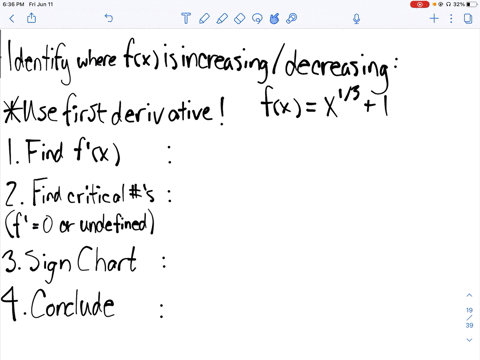 6:36 PM Fri Jun 11
32%
Identify where f(x) is increasing/decreasing:
*Use first derivative! f(x) = x^1/3 + 1
1. Find f'(x) :
2. Find critical #'s :
(f' = 0 or undefined)
3. Sign Chart :
4. Conclude :
19
/
39